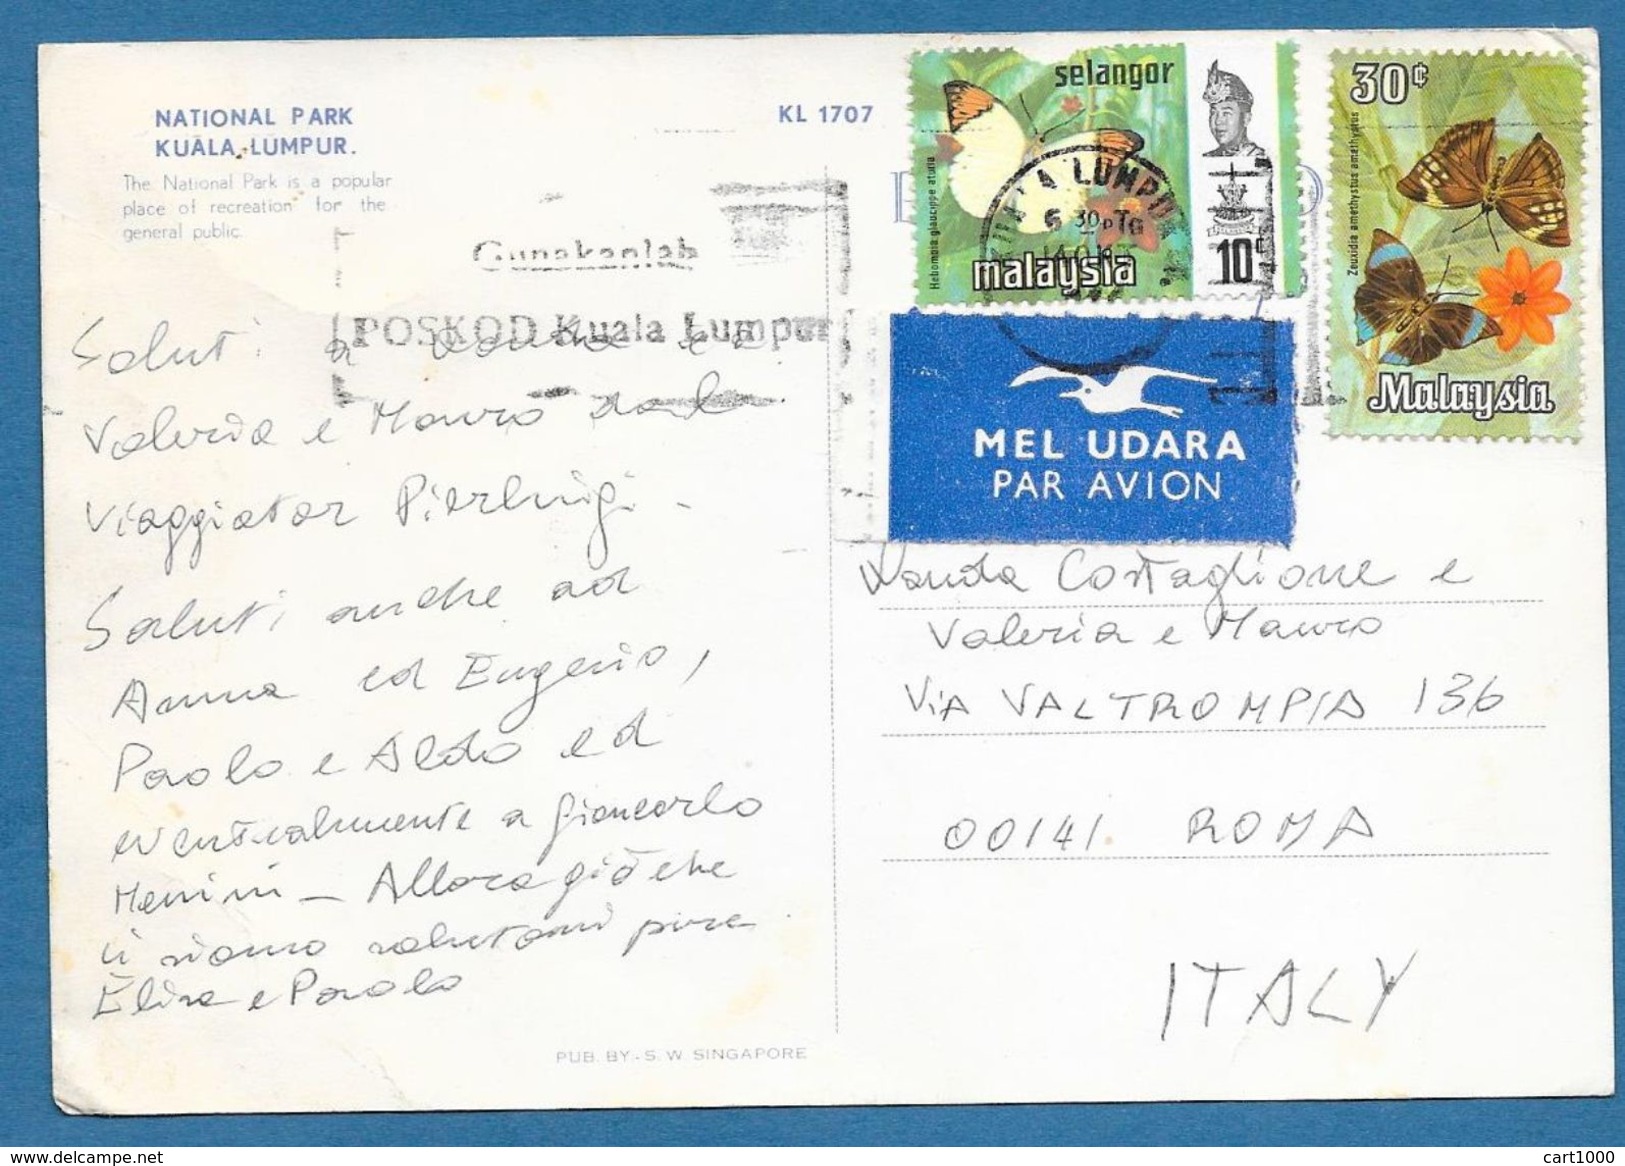 NATIONAL PARK
KUALA, LUMPUR.
The National Park is a popular
place of recreation for the
general public.
KL 1707
selangor
malaysia
10¢
Hebomoia glaucippe aturia
30¢
Malaysia
Zeuxidia amethystus amethystus
KUALA LUMPUR
6 30PTG
Gunakanlah
POSKOD Kuala Lumpur
MEL UDARA
PAR AVION
Saluti a
Valeria e Mauro dal
Viaggiator Pierluigi -
Saluti anche ad
Anna ed Eugenio,
Paolo e Aldo ed
eventualmente a Giancarlo
Menini - Allora già che
ci siamo salutami pure
Elisa e Paolo
Wanda Costaglione e
Valeria e Mauro
ViA VALTROMPIA 136
00141 ROMA
ITALY
PUB. BY - S. W. SINGAPORE
delcampe.net
cart1000